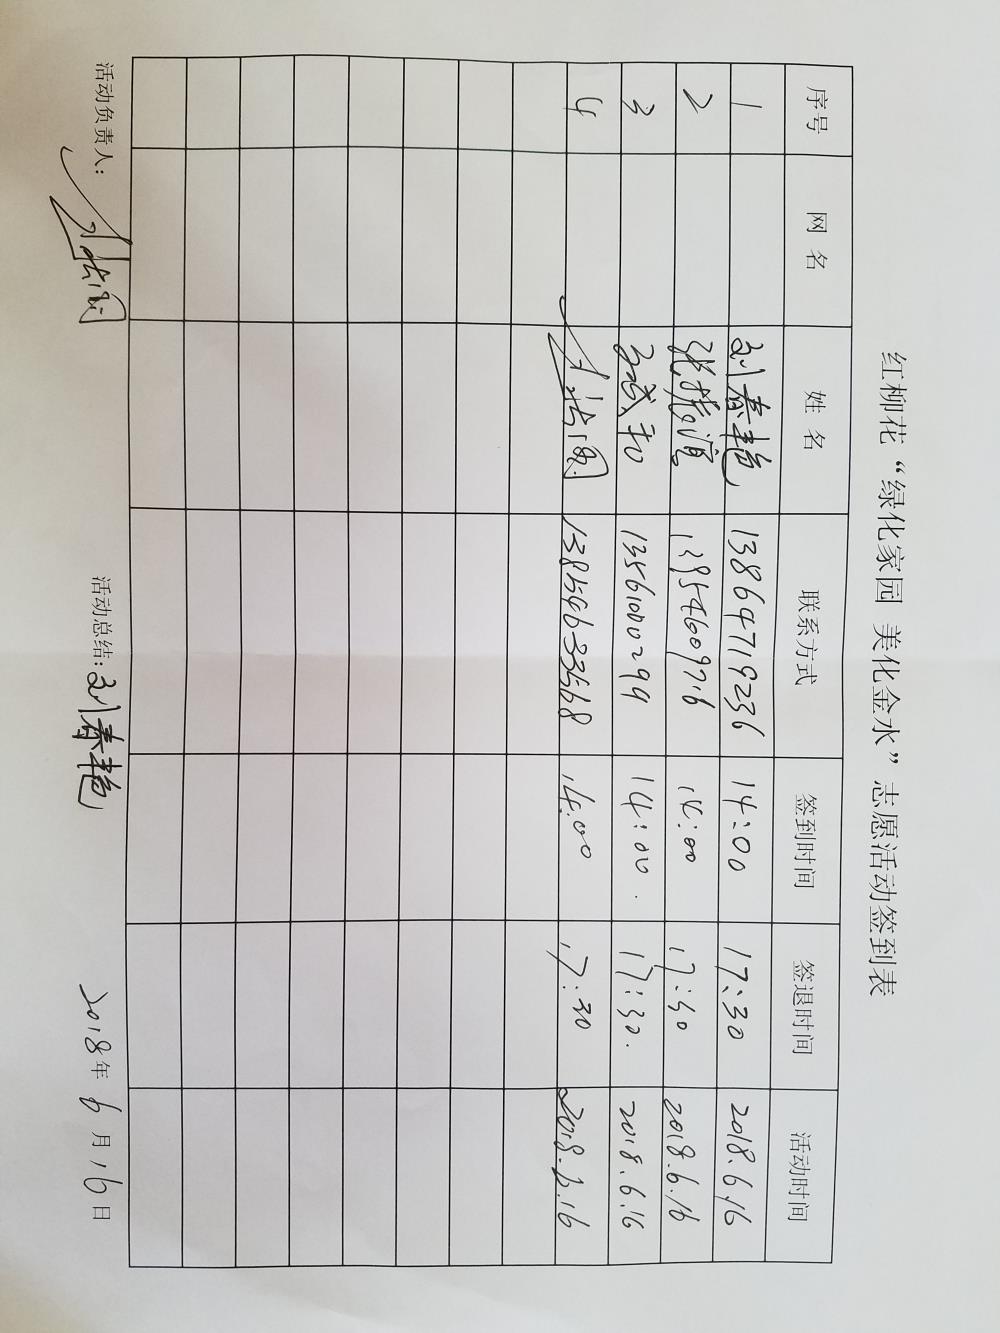 红柳花“绿化家园 美化金水”志愿活动签到表
序号 网名 姓名 联系方式 签到时间 签退时间 活动时间
1 刘春艳 13864719236 14:00 17:30 2018.6.16
2 张振滨 13954609716 14:00 17:30 2018.6.16
3 14:00. 17:30. 2018.6.16
4 13859633568 14:00 17:30 2018.6.16
活动负责人: 活动总结:刘春艳 2018年6月16日